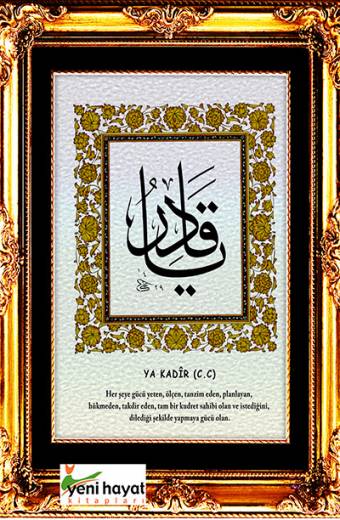 يا قَادِرُ
YA KADİR (C.C)
Her şeye gücü yeten, ölçen, tanzim eden, planlayan,
hükmeden, takdir eden, tam bir kudret sahibi olan ve istediğini,
dilediği şekilde yapmaya gücü olan.
yeni hayat
kitapları